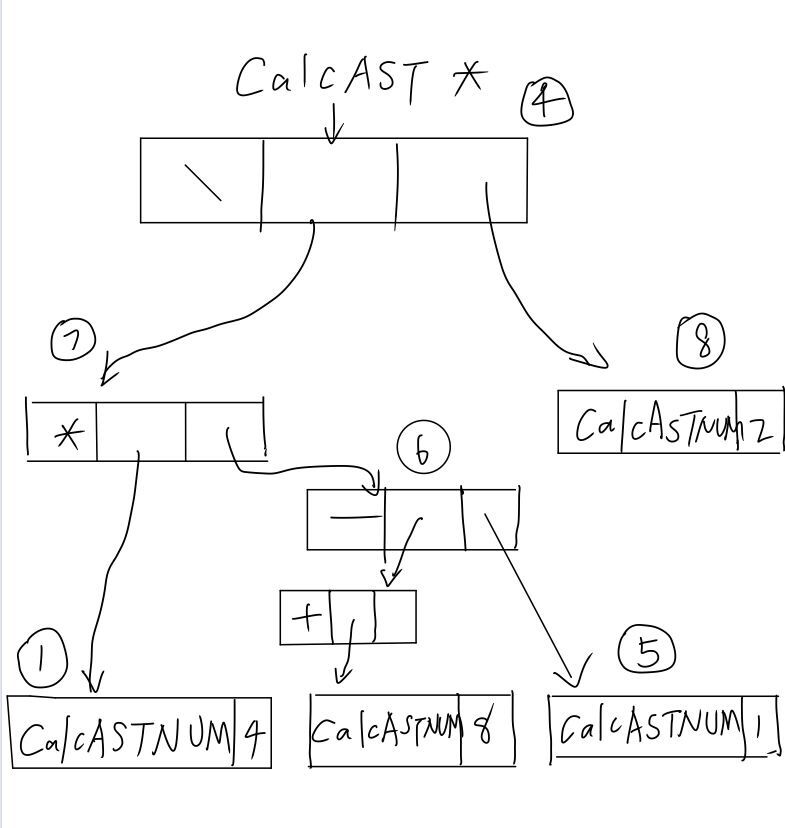 CalcAST *
4
\
7
8
*
CalcASTNUM 2
6
—
+
1
5
CalcASTNUM 4
CalcASTNUM 8
CalcASTNUM 1